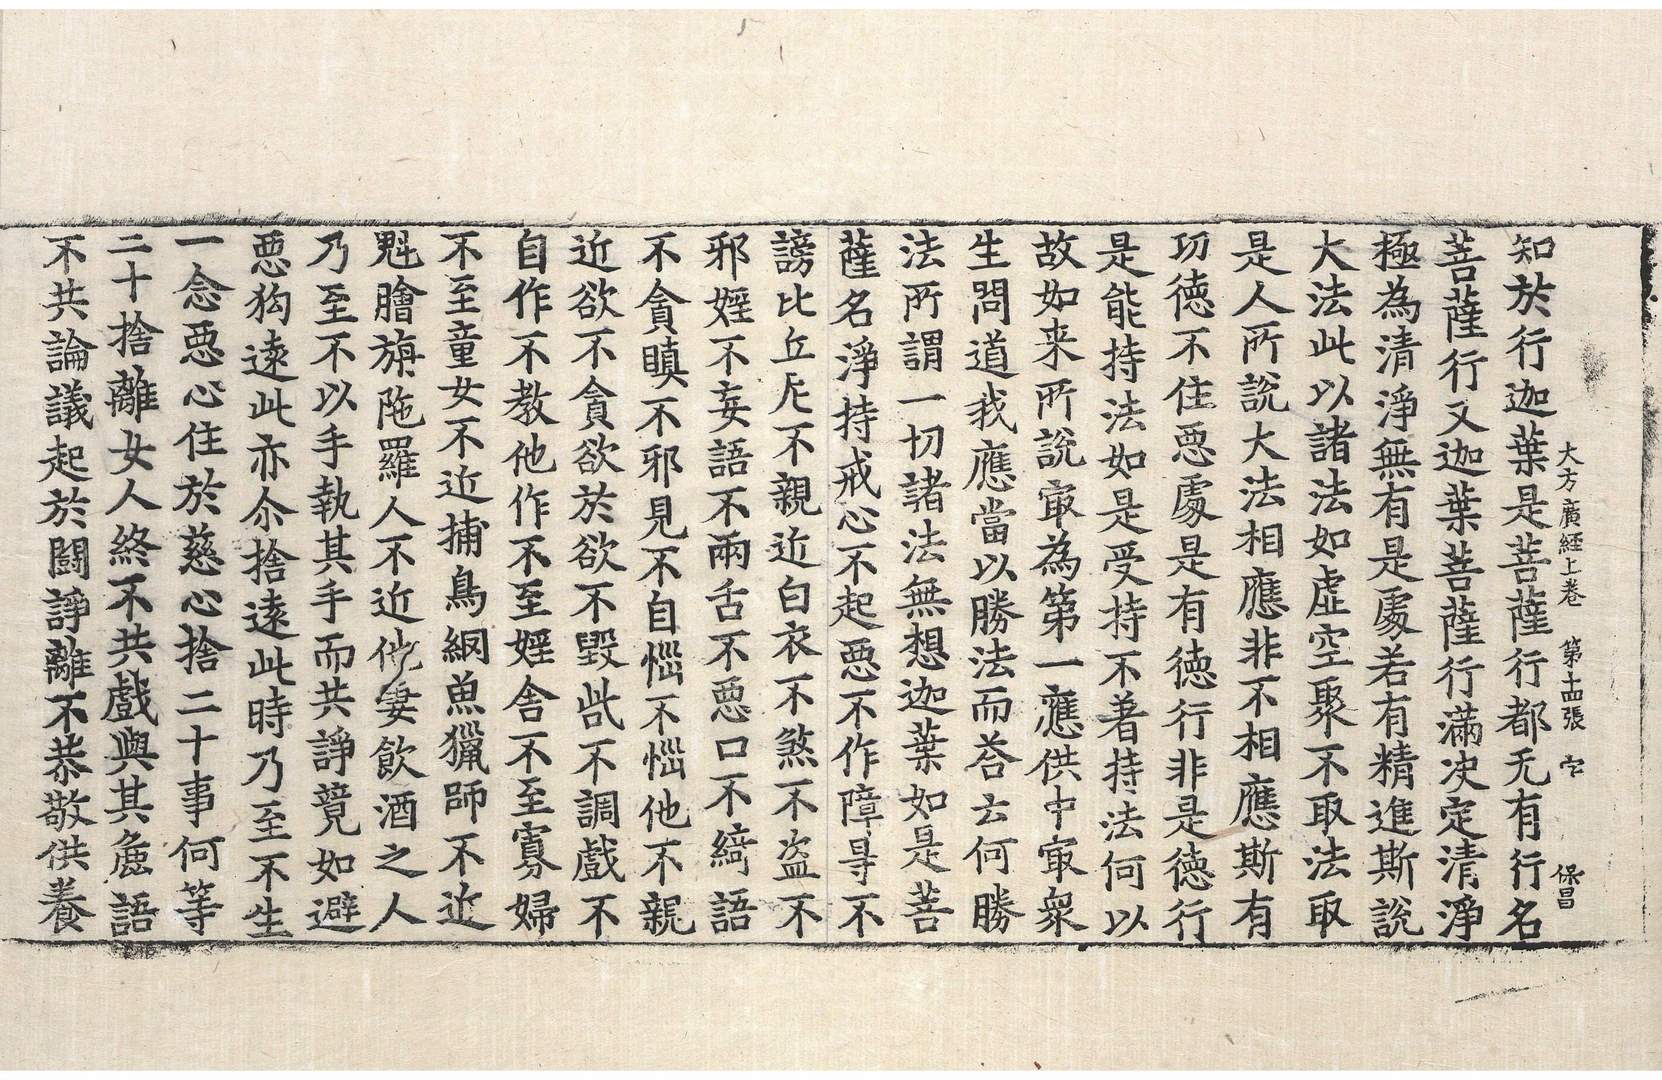 大方廣經上卷 第十四張 空 保昌
知於行迦葉是菩薩行都无有行名
菩薩行又迦葉菩薩行滿决定清淨
極為清淨無有是處若有精進斯說
大法此以諸法如虛空聚不取法取
是人所說大法相應非不相應斯有
功德不住惡處是有德行非是德行
是能持法如是受持不著持法何以
故如来所說㝡為第一應供中㝡衆
生問道我應當以勝法而荅云何勝
法所謂一切諸法無想迦葉如是菩
薩名淨持戒心不起惡不作障㝵不
謗比丘尼不親近白衣不煞不盗不
邪婬不妄語不兩舌不惡口不綺語
不貪瞋不邪見不自惱不惱他不親
近欲不貪欲於欲不毀呰不調戲不
自作不教他作不至婬舍不至寡婦
不至童女不近捕鳥網魚獵師不近
魁膾旃陁羅人不近他妻飲酒之人
乃至不以手執其手而共諍競如避
惡狗遠此亦尒捨遠此時乃至不生
一念惡心住於慈心捨二十事何等
二十捨離女人終不共戲與其麁語
不共論議起於鬪諍離不恭敬供養